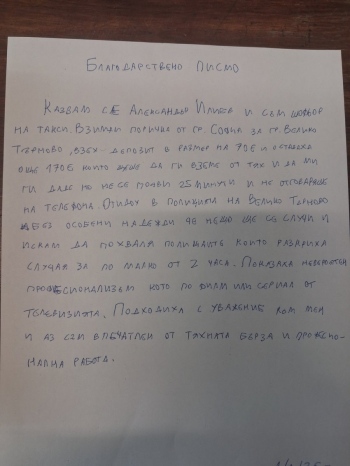 БЛАГОДАРСТВЕНО ПИСМО
КАЗВАМ СЕ АЛЕКСАНДЪР И СЪМ ШОФЬОР
НА ТАКСИ. ВЗИМАМ ПОРЪЧКА ОТ ГР. СОФИЯ ЗА ГР. ВЕЛИКО
ТЪРНОВО, ВЗЕХ ДЕПОЗИТ В РАЗМЕР НА 70Е И ОСТАВАХА
ОЩЕ 170Е КОИТО ТРЯБВАШЕ ДА ГИ ВЗЕМЕ ОТ ТЯХ И ДА МИ
ГИ ДАДЕ НО НЕ СЕ ПОЯВИ 25 МИНУТИ И НЕ ОТГОВАРЯШЕ
НА ТЕЛЕФОНА. ОТИДОХ В ПОЛИЦИЯТА НА ВЕЛИКО ТЪРНОВО
БЕЗ ОСОБЕНИ НАДЕЖДИ ЧЕ НЕЩО ЩЕ СЕ СЛУЧИ И
ИСКАМ ДА ПОХВАЛЯ ПОЛИЦАИТЕ КОИТО РАЗКРИХА
СЛУЧАЯ ЗА ПО МАЛКО ОТ 2 ЧАСА. ПОКАЗАХА НЕВЕРОЯТЕН
ПРОФЕСИОНАЛИЗЪМ КАТО ПО ФИЛМ ИЛИ СЕРИАЛ ОТ
ТЕЛЕВИЗИЯТА. ПОДХОДИХА С УВАЖЕНИЕ КЪМ МЕН
И АЗ СЪМ ВПЕЧАТЛЕН ОТ ТЯХНАТА БЪРЗА И ПРОФЕСИО-
НАЛНА РАБОТА.